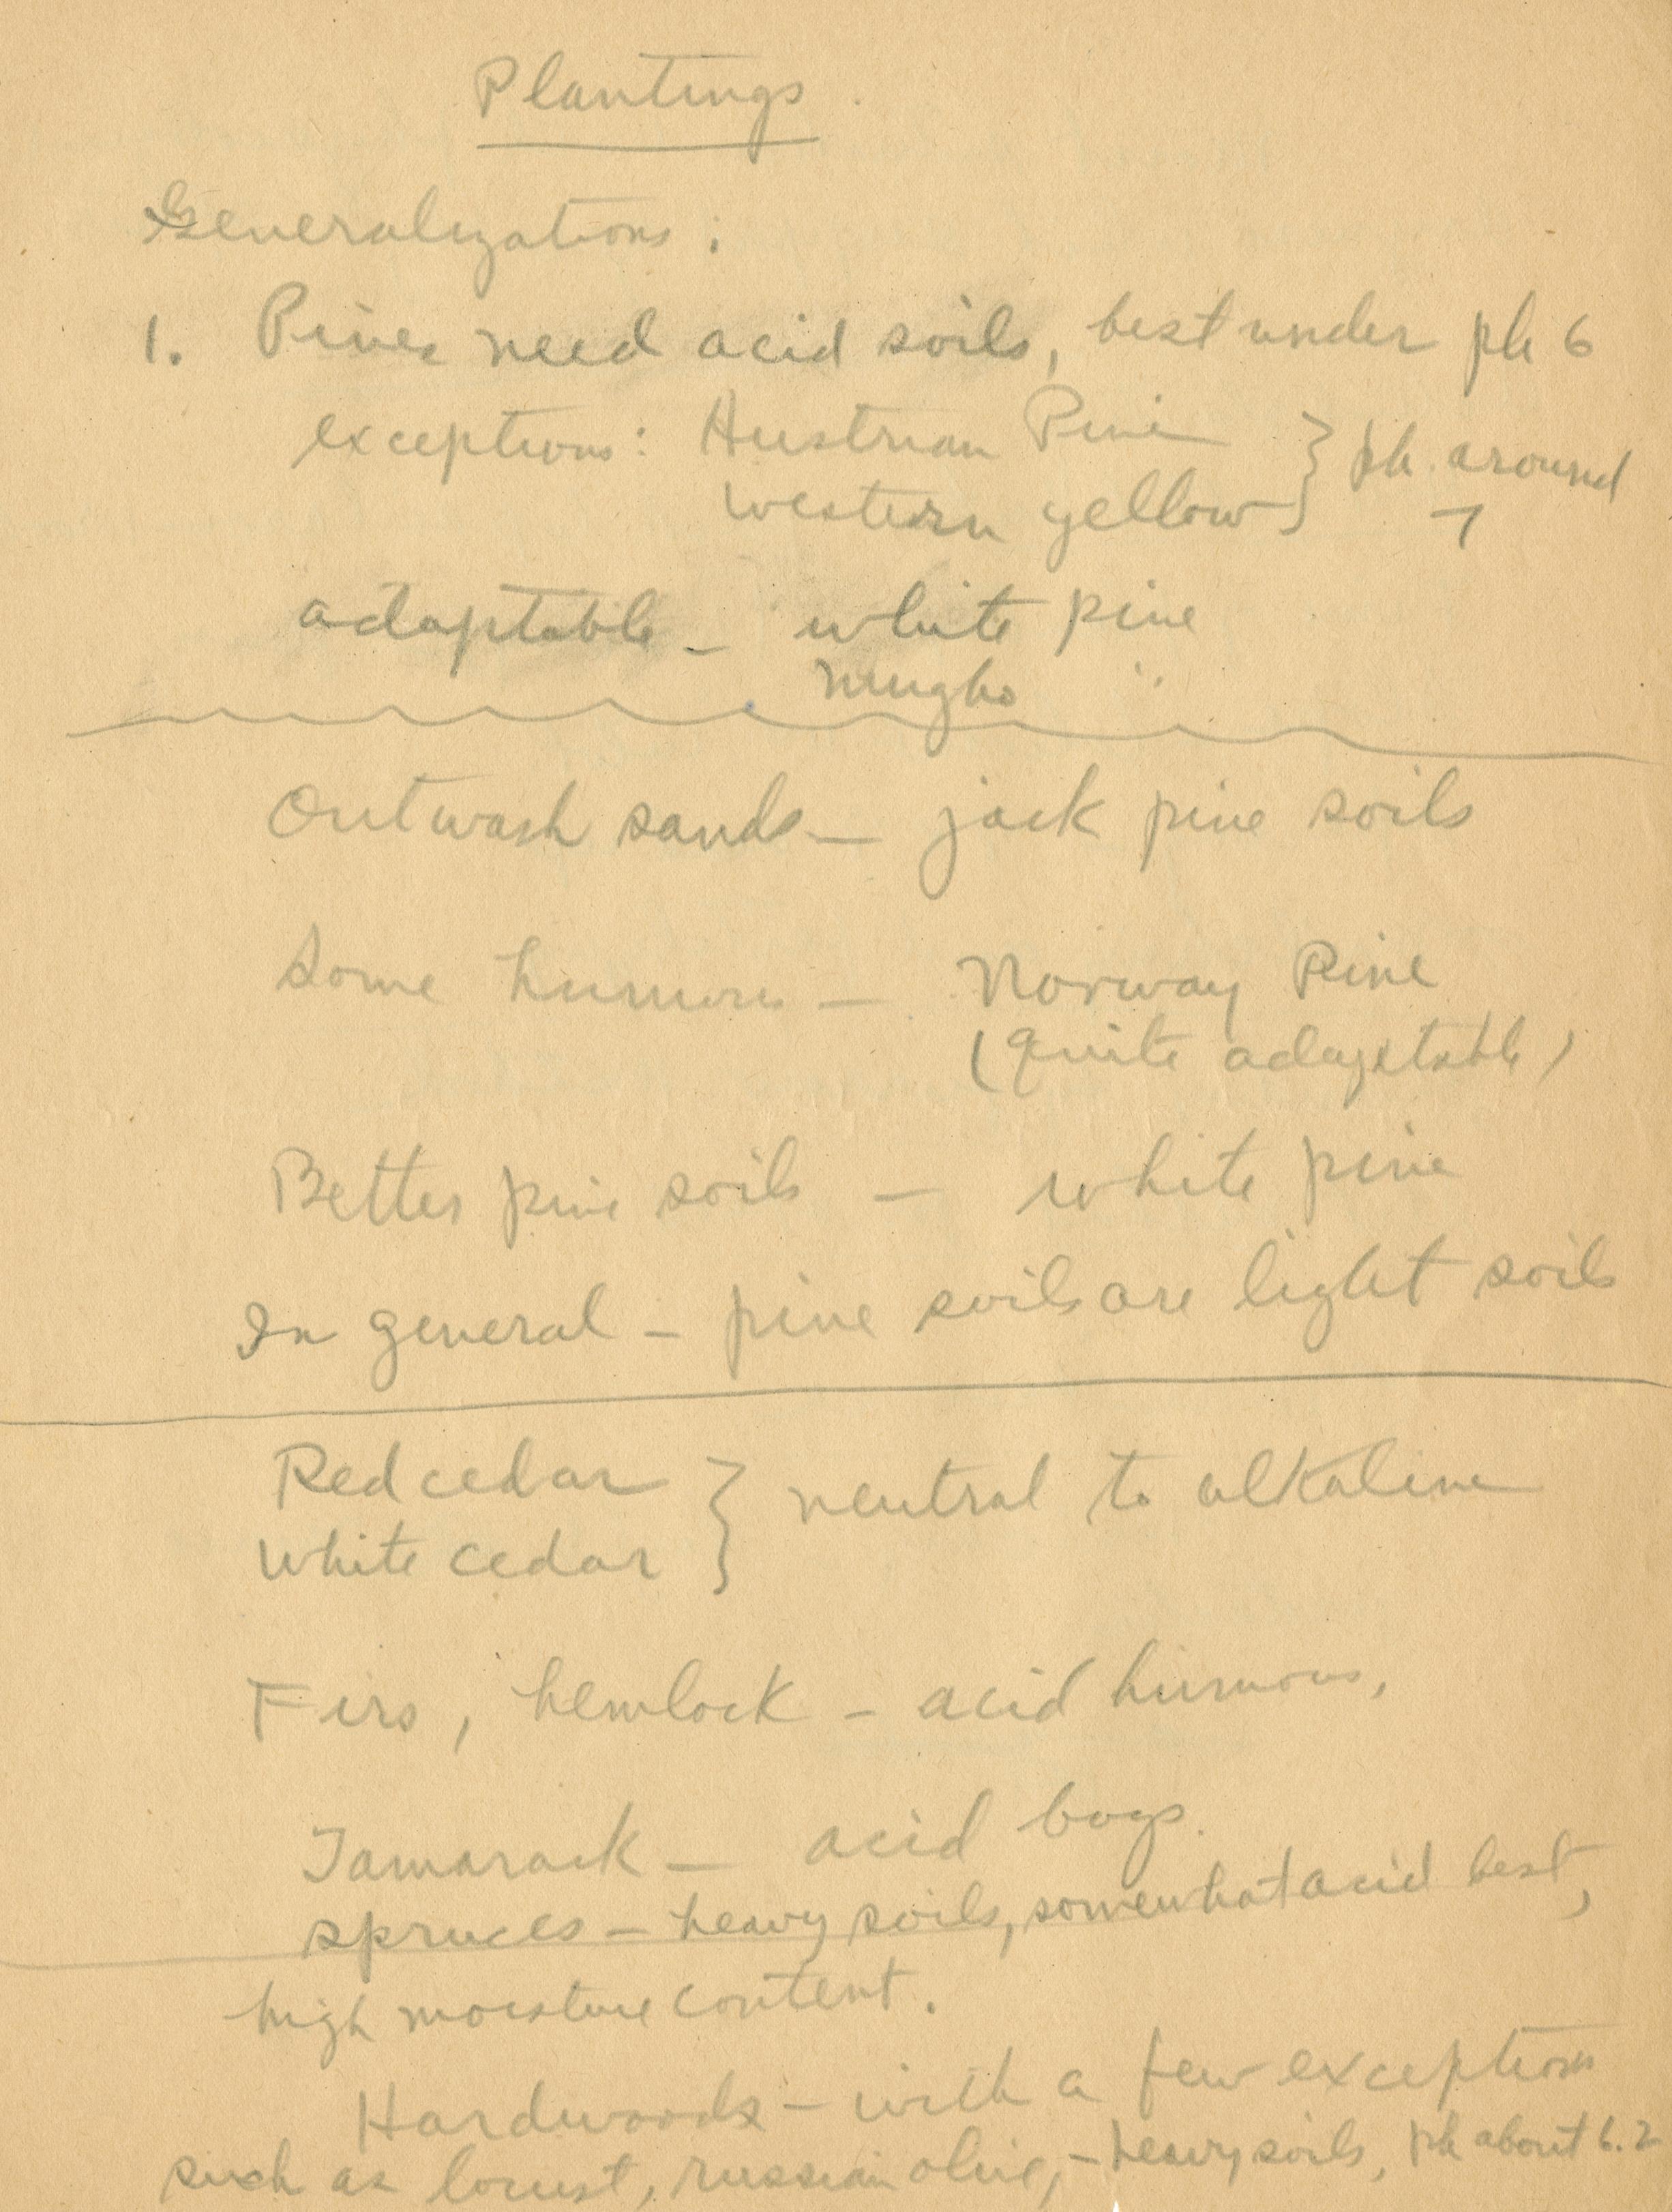 Plantings
Generalizations:
1. Pines need acid soils, best under ph 6
exceptions: Austrian Pine } ph. around
western yellow 7
adaptable - white pine
mugho "
Outwash sands - jack pine soils
Some humous - Norway Pine
(quite adaptable)
Better pine soils - white pine
In general - pine soils are light soils
Red cedar } neutral to alkaline
White cedar
Firs, hemlock - acid humous,
Tamarack - acid bogs.
spruces - heavy soils, somewhat acid best,
high moisture content.
Hardwoods - with a few exceptions
such as locust, russian olive, - heavy soils, ph about 6.2